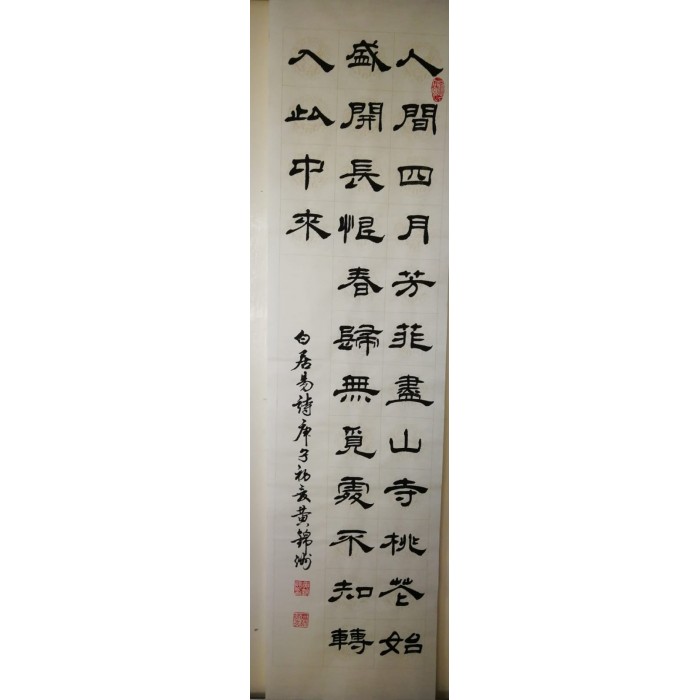 人間四月芳菲盡山寺桃花始
盛開長恨春歸無覓處不知轉
入此中來
白居易詩庚子初夏黄錦洲